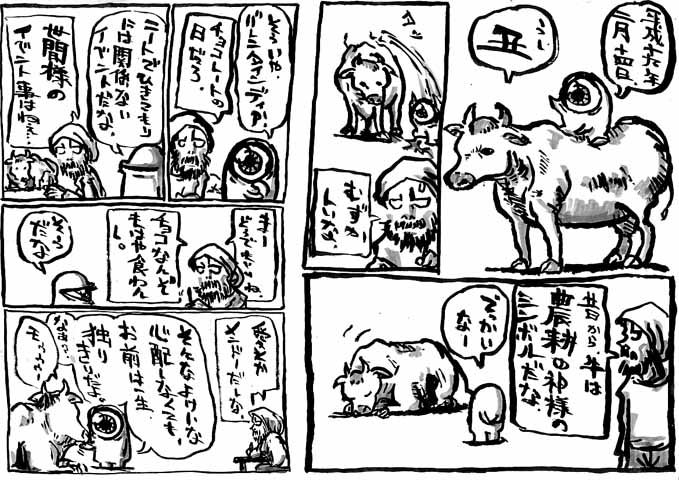 平成十六年
二月十四日。
うし
丑
昔から牛は
農耕の神様の
シンボルだな。
でっかい
なー
むずか
しいな
そういや
バレンタインディか
チョコレートの
日だろ。
ニートでひきこもり
には関係ない
イベントだな。
世間様の
イベント事はねぇ…
まー
どうでもいいね。
チョコなんぞ
もはや食わん
し。
そう
だな
そんなよけいな
心配しなくても、
お前は一生
独り
きりだよ。
なぁ…
モー…